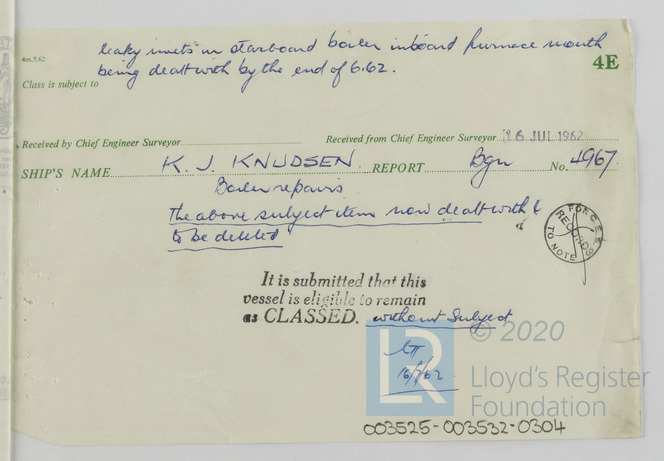 leaky rivets in starboard boiler inboard furnace mouth
4m.5.62
being dealt with by the end of 6.62.
4E
Class is subject to
Received by Chief Engineer Surveyor
Received from Chief Engineer Surveyor 16 JUL 1962
SHIP'S NAME K. J. KNUDSEN. REPORT Bgn No. 4967.
Boiler repairs
The above subject item now dealt with &
to be deleted
FOR C.E.E.
RECORDS
TO NOTE
It is submitted that this
vessel is eligible to remain
as CLASSED. without Subject
16/7/62
© 2020
LR
Lloyd's Register
Foundation
003525-003532-0304